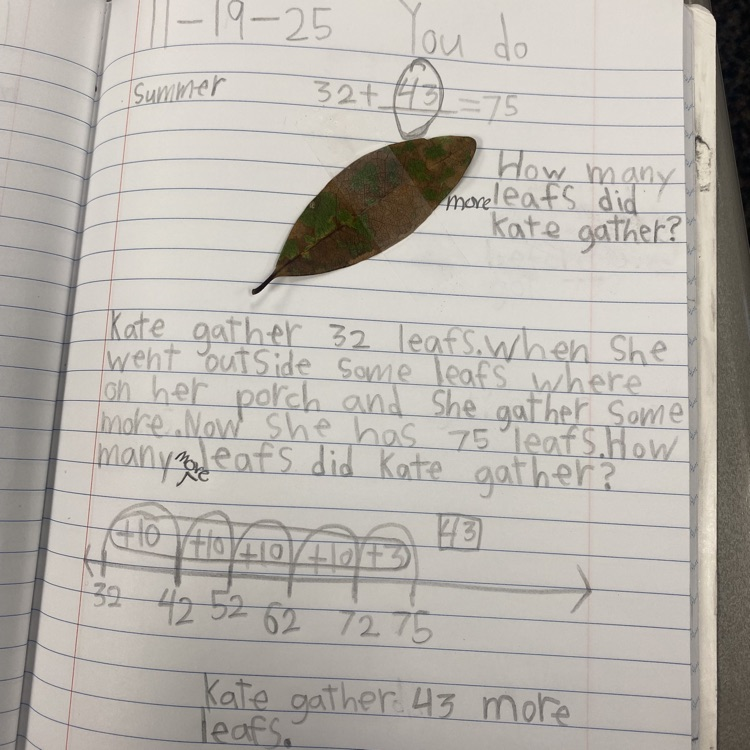 11-19-25 You do
Summer 32+ 43 =75
How many
more leafs did
Kate gather?
Kate gather 32 leafs.When She
went outside some leafs where
on her porch and She gather some
more.Now she has 75 leafs.How
many more leafs did Kate gather?
+10 +10 +10 +10 +3 43
32 42 52 62 72 75
Kate gather 43 more
leafs.